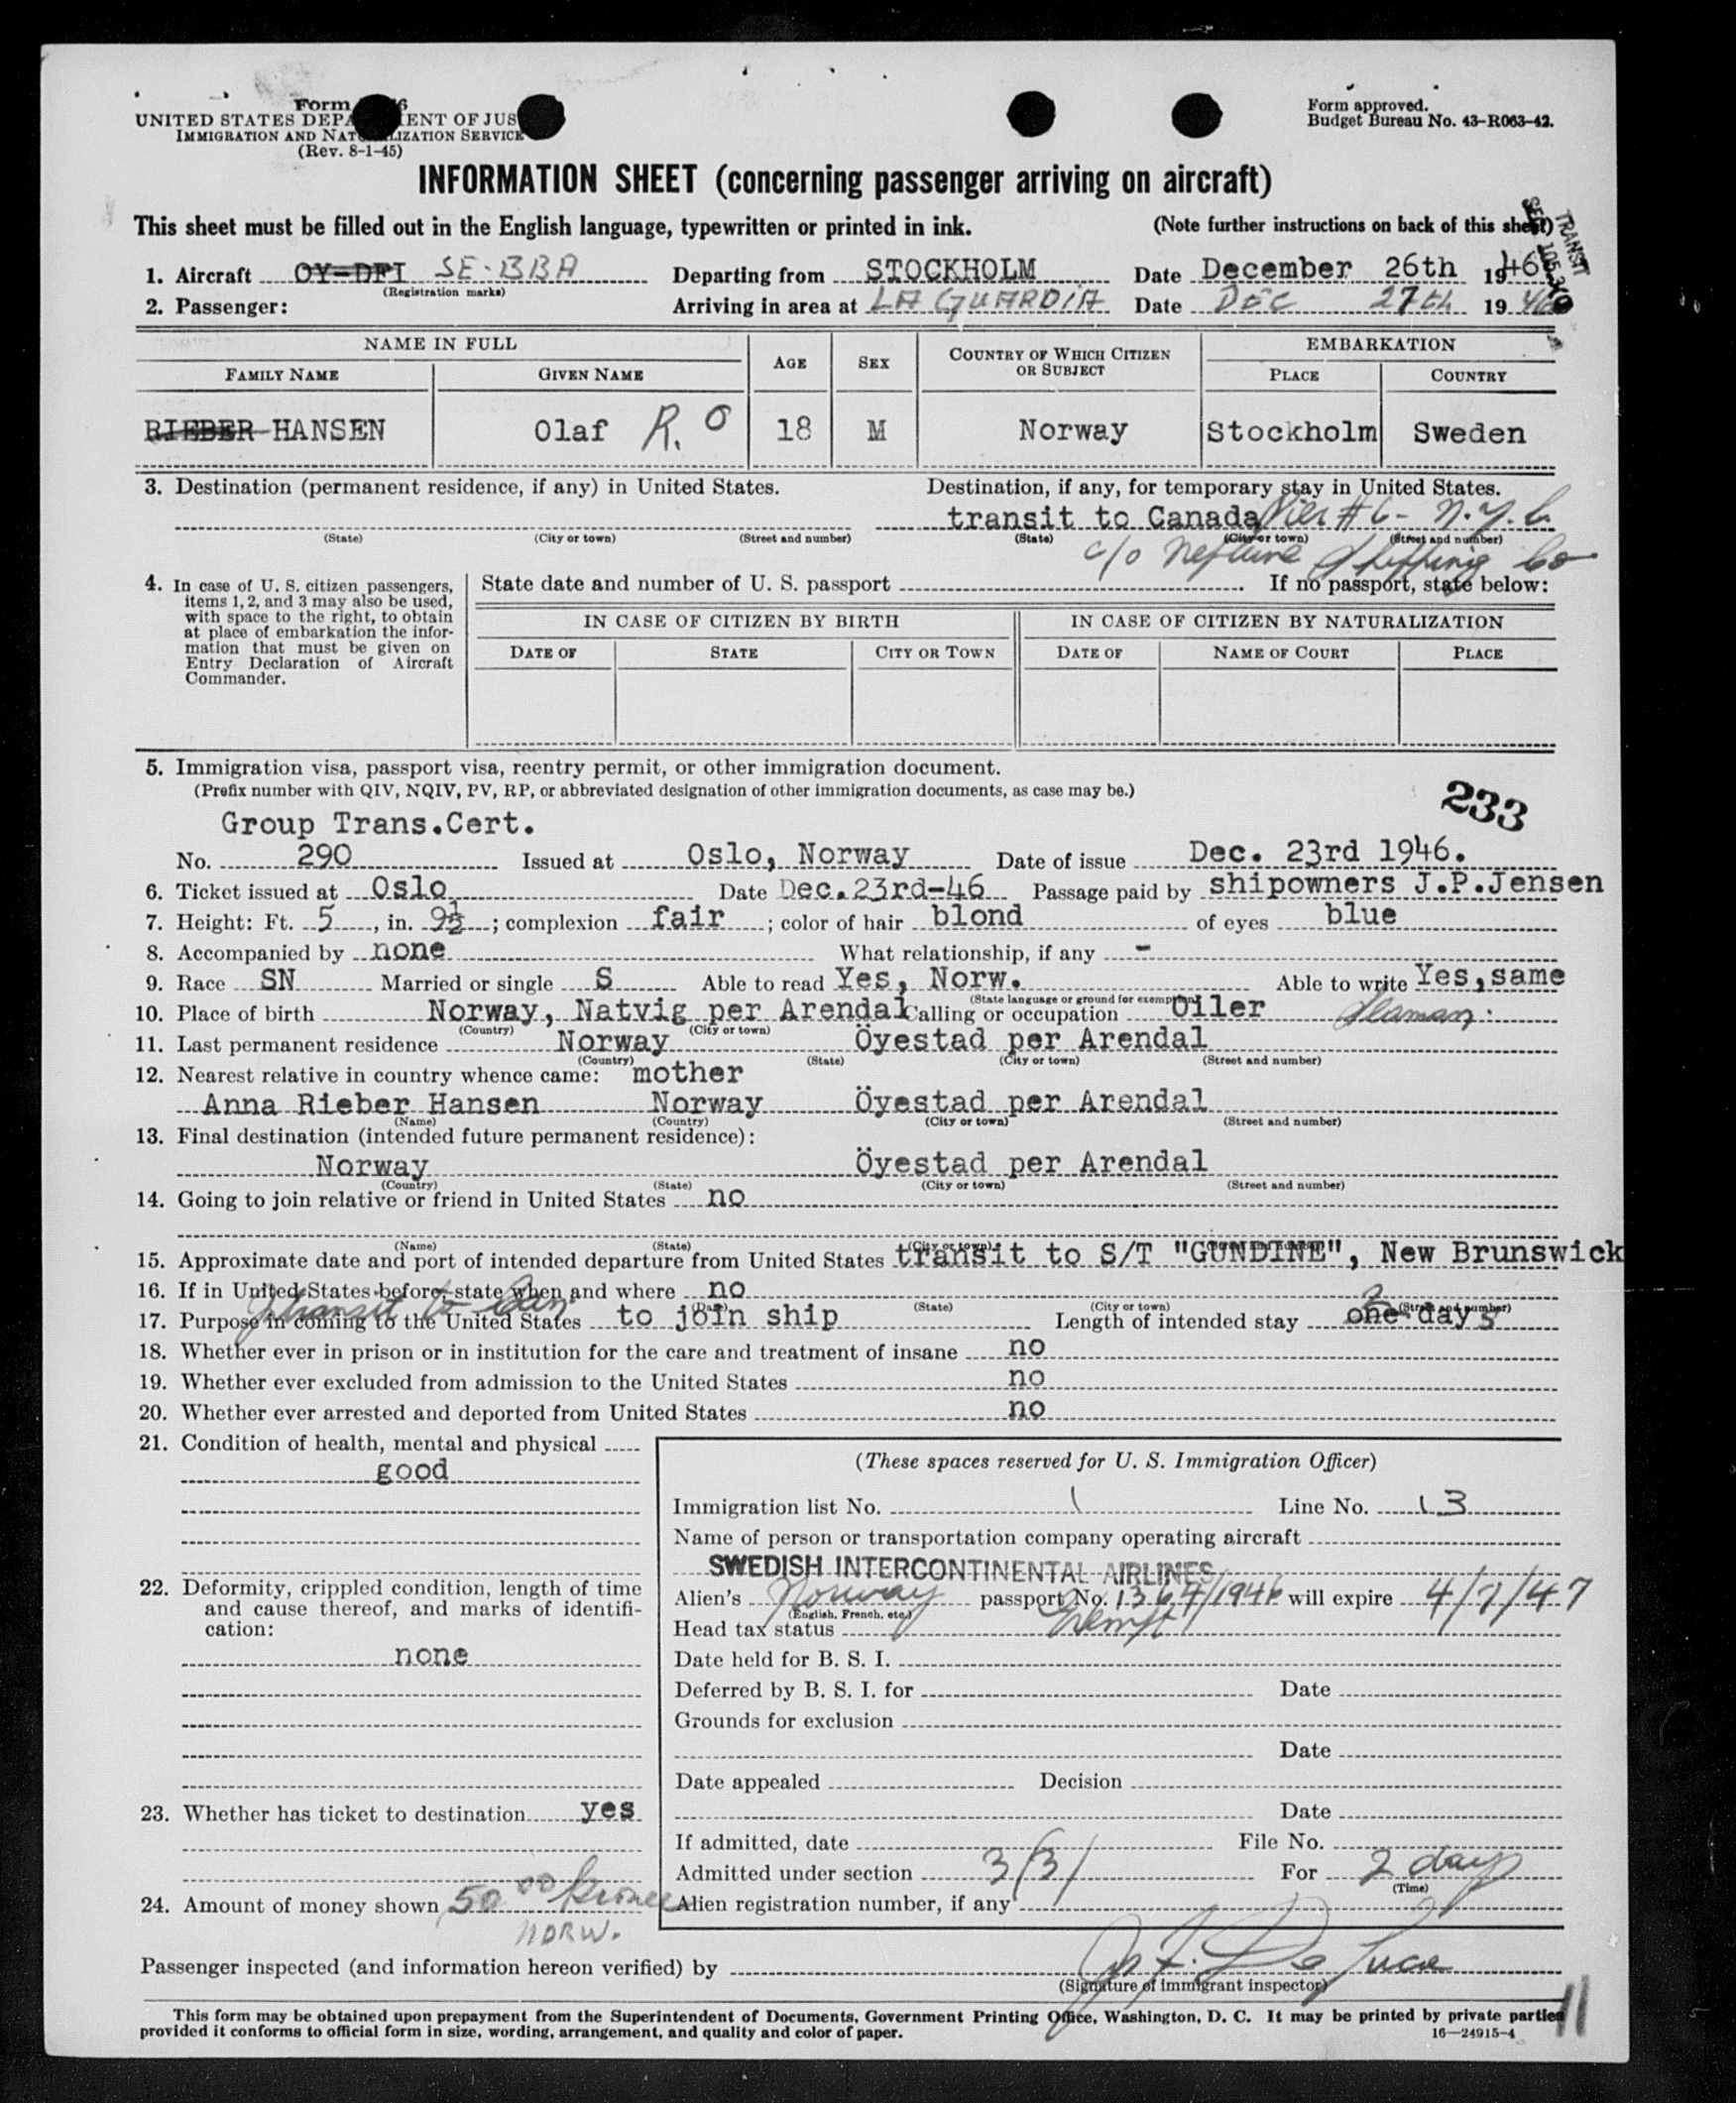 Form
UNITED STATES DEPA ENT OF JUS
IMMIGRATION AND NAT LIZATION SERVICE
(Rev. 8-1-45)
Form approved.
Budget Bureau No. 43-R063-42.
INFORMATION SHEET (concerning passenger arriving on aircraft)
This sheet must be filled out in the English language, typewritten or printed in ink. (Note further instructions on back of this sheet)
TRANSIT
1. Aircraft OY-DFI SE-BBA Departing from STOCKHOLM Date December 26th 1946
(Registration marks)
2. Passenger: Arriving in area at LA GUARDIA Date DEC 27th 1946
NAME IN FULL AGE SEX COUNTRY OF WHICH CITIZEN OR SUBJECT EMBARKATION
FAMILY NAME GIVEN NAME PLACE COUNTRY
RIEBER HANSEN Olaf R. 18 M Norway Stockholm Sweden
3. Destination (permanent residence, if any) in United States. Destination, if any, for temporary stay in United States.
transit to Canada Pier #6 - N.Y.C.
(State) (City or town) (Street and number) (State) (City or town) (Street and number)
c/o Neptune Shipping Co
4. In case of U. S. citizen passengers, items 1, 2, and 3 may also be used, with space to the right, to obtain at place of embarkation the information that must be given on Entry Declaration of Aircraft Commander.
State date and number of U. S. passport If no passport, state below:
IN CASE OF CITIZEN BY BIRTH IN CASE OF CITIZEN BY NATURALIZATION
DATE OF STATE CITY OR TOWN DATE OF NAME OF COURT PLACE
5. Immigration visa, passport visa, reentry permit, or other immigration document.
(Prefix number with QIV, NQIV, PV, RP, or abbreviated designation of other immigration documents, as case may be.)
233
Group Trans.Cert.
No. 290 Issued at Oslo, Norway Date of issue Dec. 23rd 1946.
6. Ticket issued at Oslo Date Dec.23rd-46 Passage paid by shipowners J.P.Jensen
7. Height: Ft. 5, in. 9½; complexion fair; color of hair blond of eyes blue
8. Accompanied by none What relationship, if any -
9. Race SN Married or single S Able to read Yes, Norw. Able to write Yes, same
(State language or ground for exemption)
10. Place of birth Norway, Natvig per Arendal Calling or occupation Oiler Seaman
(Country) (City or town)
11. Last permanent residence Norway Öyestad per Arendal
(Country) (State) (City or town) (Street and number)
12. Nearest relative in country whence came: mother
Anna Rieber Hansen Norway Öyestad per Arendal
(Name) (Country) (City or town) (Street and number)
13. Final destination (intended future permanent residence):
Norway Öyestad per Arendal
(Country) (State) (City or town) (Street and number)
14. Going to join relative or friend in United States no
(Name) (State) (City or town)
15. Approximate date and port of intended departure from United States transit to S/T "GUNDINE", New Brunswick
16. If in United States before, state when and where no
(Date) (State) (City or town) (Street and number)
transit to Can
17. Purpose in coming to the United States to join ship Length of intended stay one 2 days
18. Whether ever in prison or in institution for the care and treatment of insane no
19. Whether ever excluded from admission to the United States no
20. Whether ever arrested and deported from United States no
21. Condition of health, mental and physical
good
22. Deformity, crippled condition, length of time and cause thereof, and marks of identification:
none
23. Whether has ticket to destination yes
24. Amount of money shown 50.00 Kronee
NORW.
(These spaces reserved for U. S. Immigration Officer)
Immigration list No. 1 Line No. 13
Name of person or transportation company operating aircraft
SWEDISH INTERCONTINENTAL AIRLINES
Alien's Norway passport No. 1364/1946 will expire 4/7/47
(English, French, etc.)
Head tax status Exempt
Date held for B. S. I.
Deferred by B. S. I. for Date
Grounds for exclusion
Date
Date appealed Decision
Date
If admitted, date File No.
Admitted under section 3/3/ For 2 days
(Time)
Alien registration number, if any
Passenger inspected (and information hereon verified) by
(Signature of immigrant inspector)
This form may be obtained upon prepayment from the Superintendent of Documents, Government Printing Office, Washington, D. C. It may be printed by private parties
provided it conforms to official form in size, wording, arrangement, and quality and color of paper. 16—24915-4
11